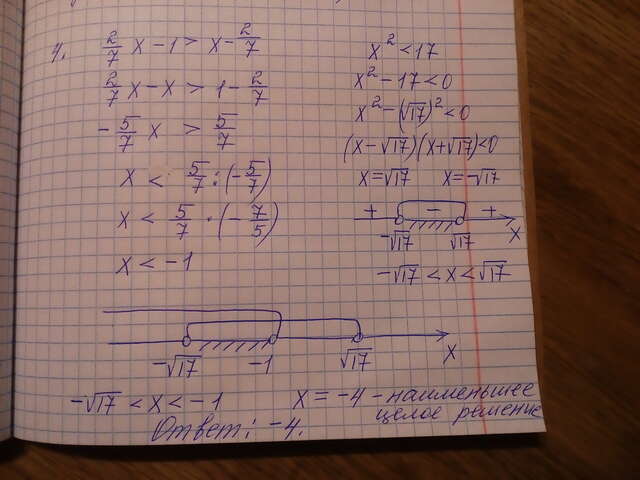 4. 2/7 x - 1 > x - 2/7
2/7 x - x > 1 - 2/7
- 5/7 x > 5/7
x < 5/7 : (- 5/7)
x < 5/7 · (- 7/5)
x < -1
x² < 17
x² - 17 < 0
x² - (√17)² < 0
(x - √17)(x + √17) < 0
x = √17 x = -√17
+ - +
-√17 √17 x
-√17 < x < √17
-√17 -1 √17 x
-√17 < x < -1
x = -4 - наименьшее
целое решение
Ответ: -4.